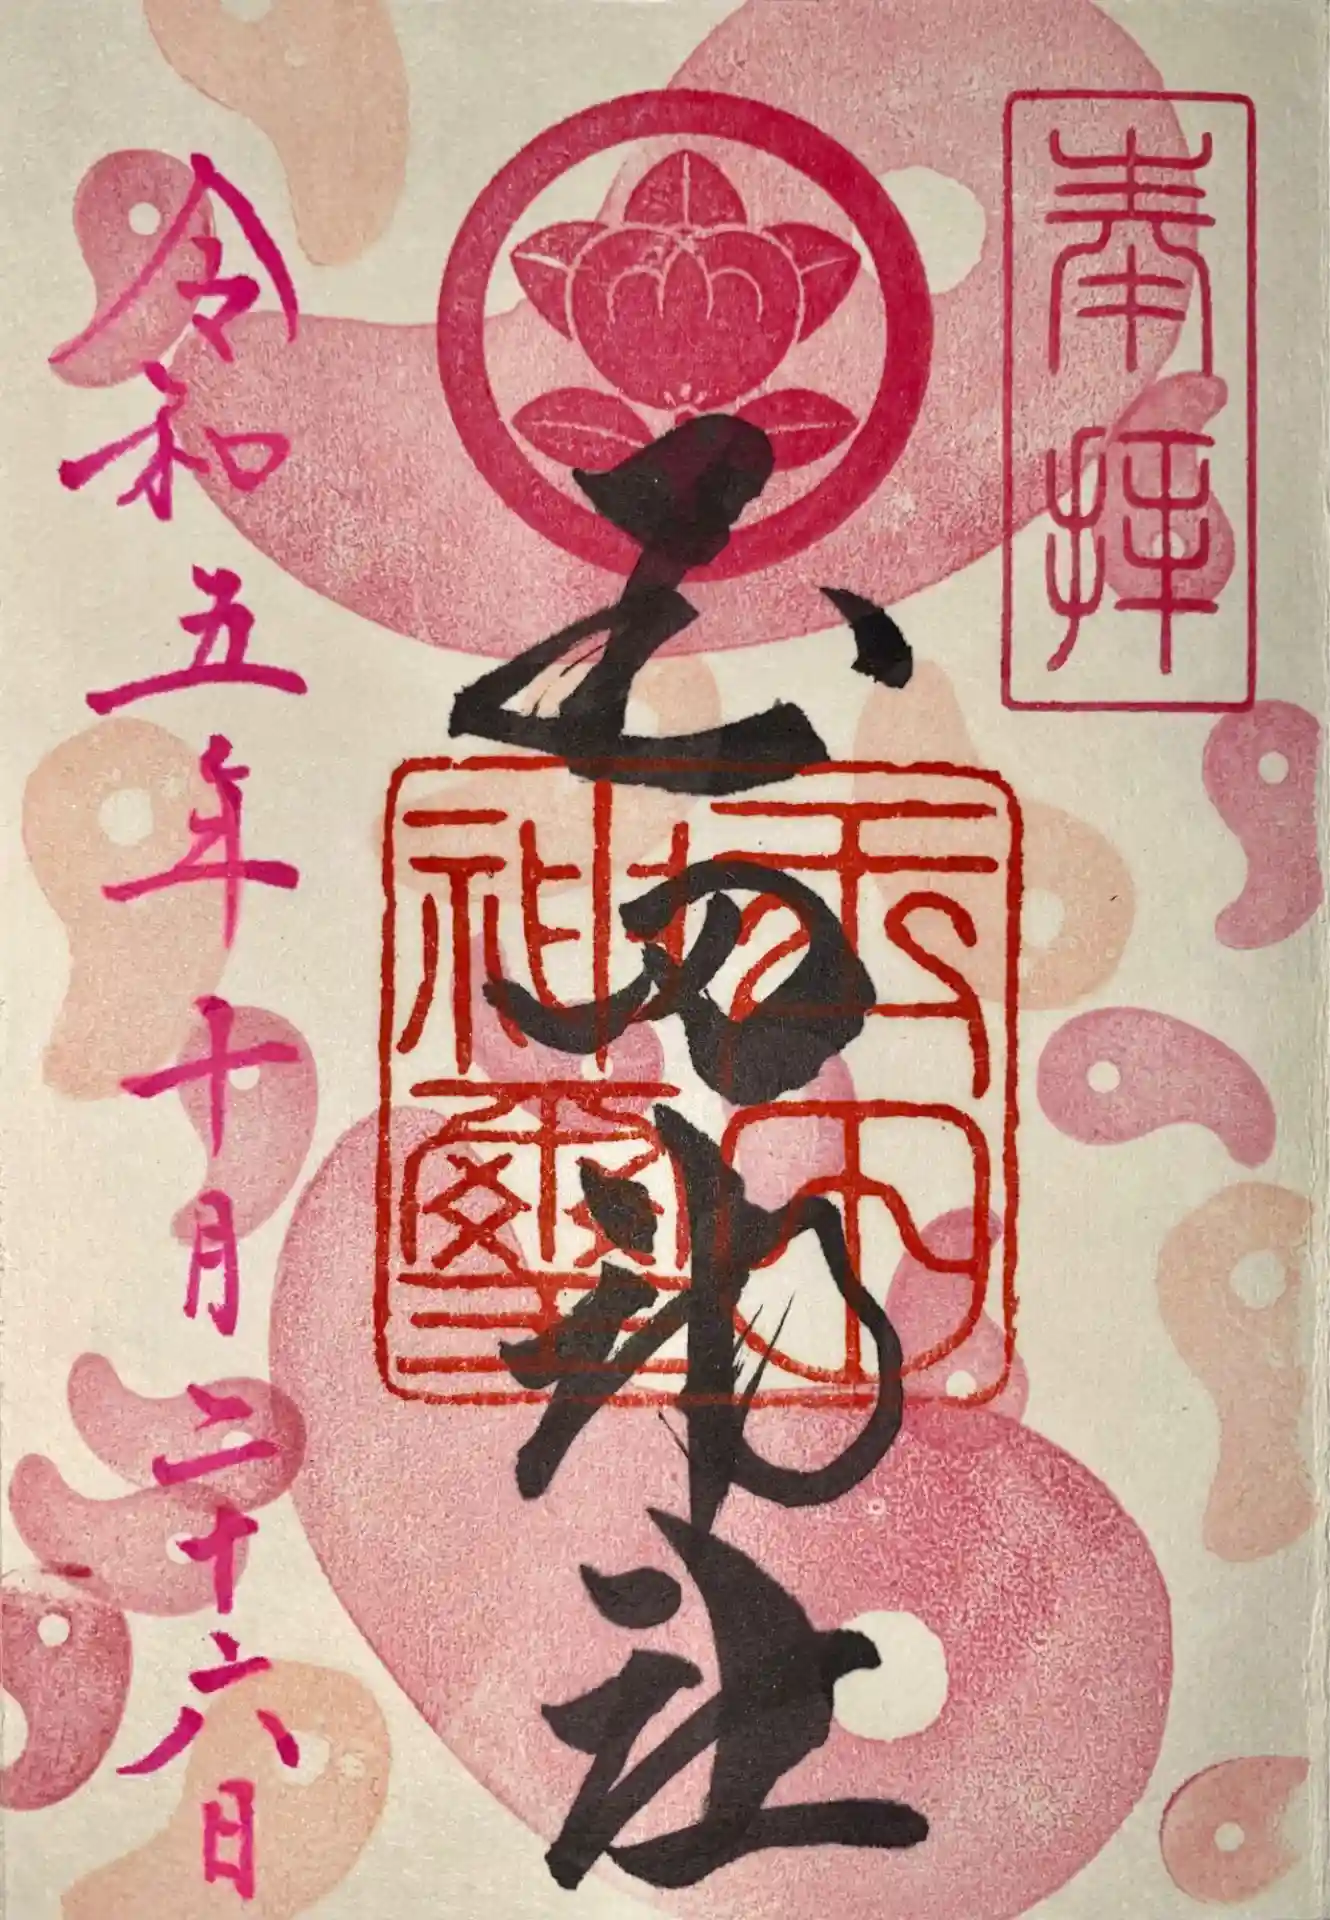 奉拝
玉田神社
玉田神璽
令和五年十月二十六日